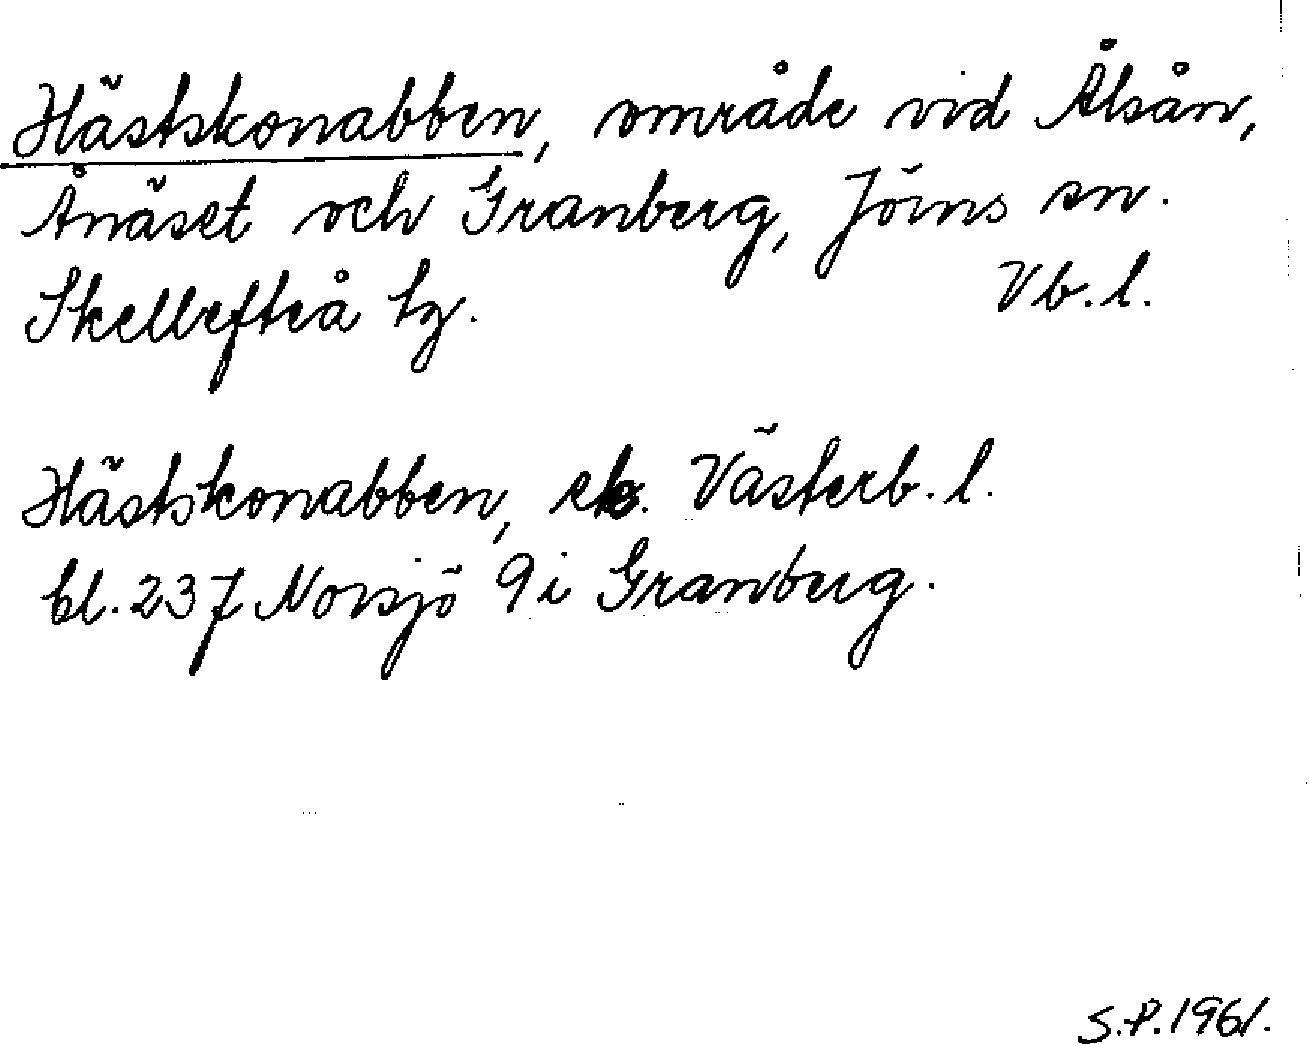 Hästskonabben, område vid Ålsån,
Ånäset och Granberg, Jörns sn.
Skellefteå tg. Vb.l.
Hästskonabben, ek. Västerb.l.
bl. 237 Norsjö 9i Granberg.
S.P.1961.